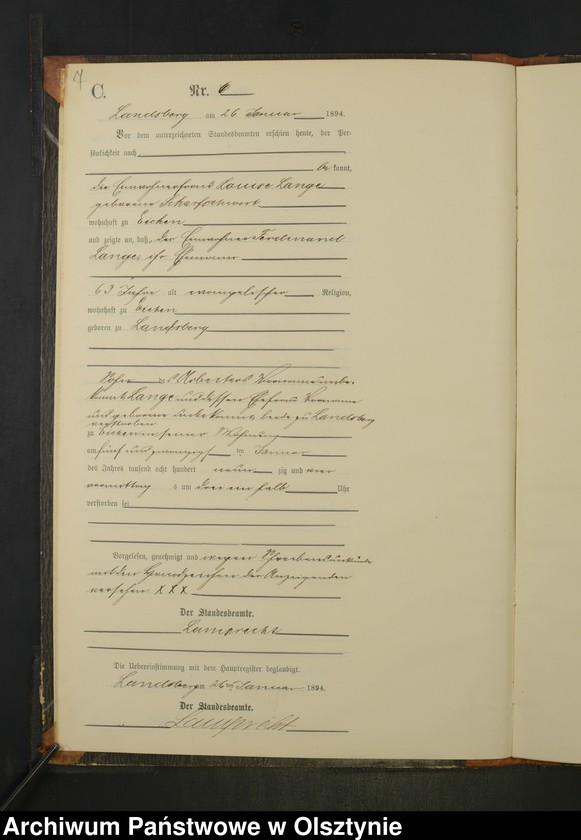 4
C. Nr. 6
Landsberg am 26 Januar 1894.
Vor dem unterzeichneten Standesbeamten erschien heute, der Per-
sönlichkeit nach,
be kannt,
die Einwohnerfrau Louise Lange
geborene
wohnhaft zu Eichen
und zeigte an, daß, der Einwohner Ferdinand
Lange, ihr Ehemann
63 Jahre alt evangelischer Religion,
wohnhaft zu Eichen
geboren zu Landsberg
Sohn des Arbeiters Vorname unbe-
kannt Lange und dessen Ehefrau Vorname
und geborene unbekannt beide zu Landsberg
verstorben
zu Eichen in seiner Wohnung
am fünf und zwanzigsten Januar
des Jahres tausend acht hundert neun zig und vier
vormittag s um drei ein halb Uhr
verstorben sei
Vorgelesen, genehmigt und wegen Schreibensunkunde
mit den Handzeichen der Anzeigenden
versehen XXX
Der Standesbeamte.
Lamprecht
Die Uebereinstimmung mit dem Hauptregister beglaubigt.
Landsberg am 26 Januar 1894.
Der Standesbeamte.
Lamprecht
Archiwum Państwowe w Olsztynie